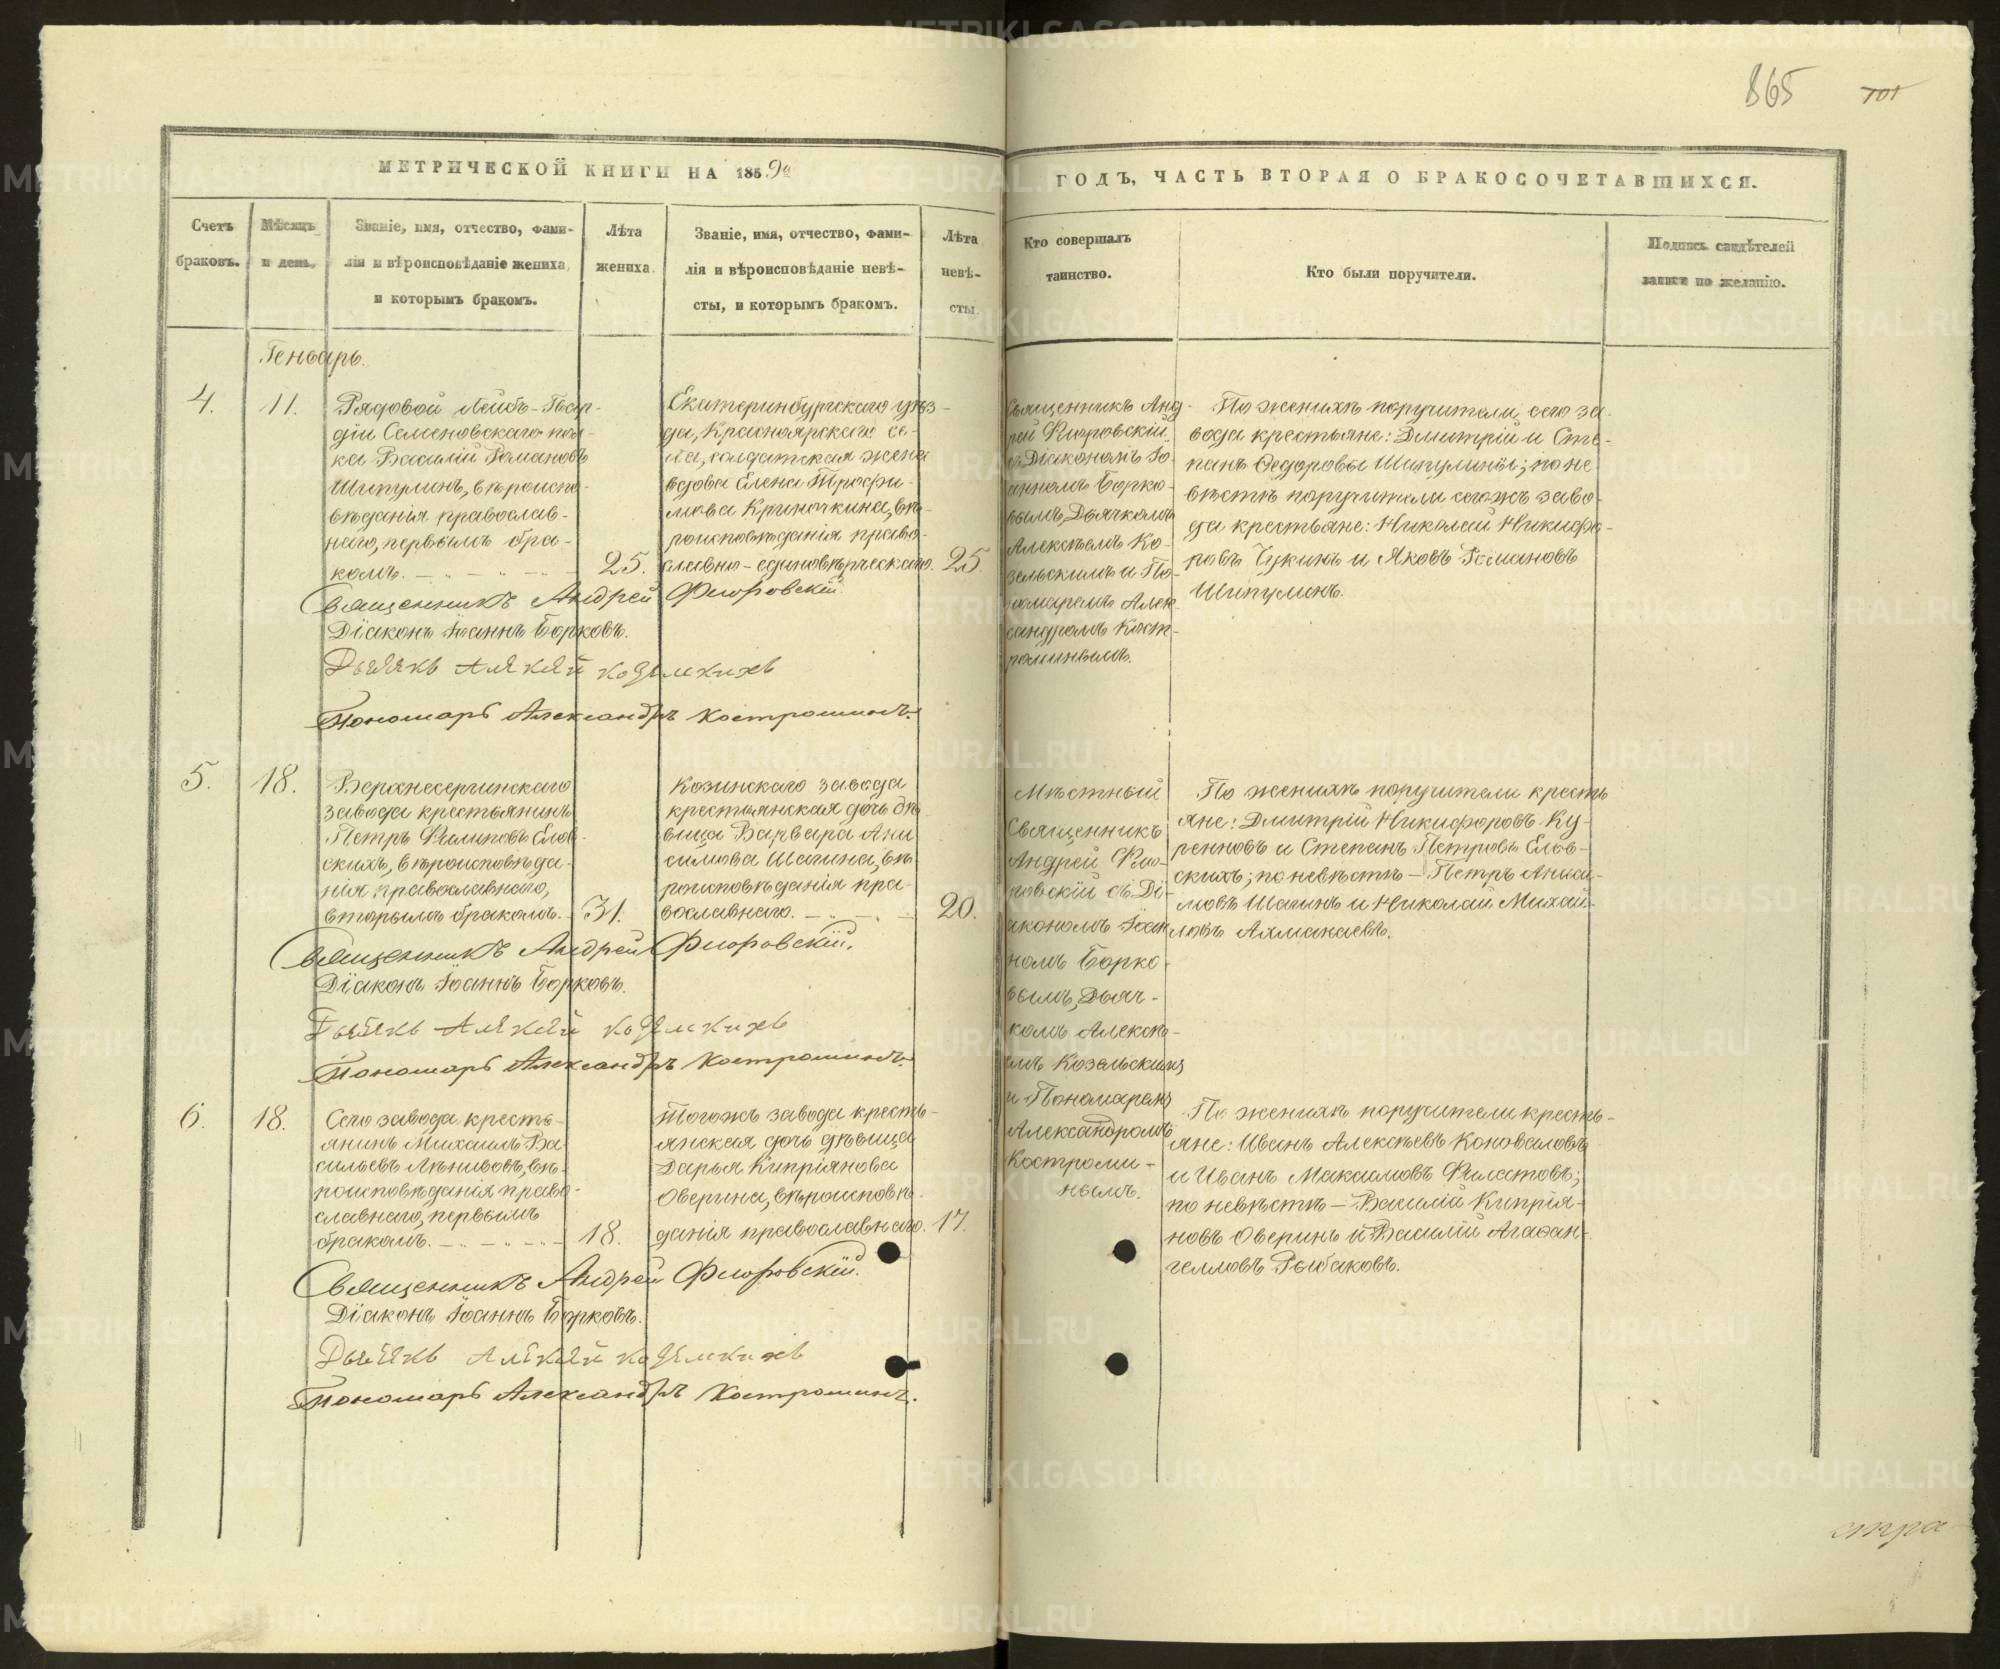 865 101
МЕТРИЧЕСКОЙ КНИГИ НА 1859й
ГОДЪ, ЧАСТЬ ВТОРАЯ О БРАКОСОЧЕТАВШИХСЯ.
Счетъ
браковъ.
Мѣсяцъ
и день.
Званіе, имя, отчество, фами-
лія и вѣроисповѣданіе жениха,
и которымъ бракомъ.
Лѣта
жениха.
Званіе, имя, отчество, фами-
лія и вѣроисповѣданіе невѣ-
сты, и которымъ бракомъ.
Лѣта
невѣ-
сты.
Кто совершалъ
таинство.
Кто были поручители.
Подпись свидѣтелей
записи по желанію.
Генварь.
4.
11.
Рядовой Лейбъ-Гвар-
діи Семеновскаго пол-
ка Василій Романовъ
Шипулинъ, вѣроиспо-
вѣданія православ-
наго, первымъ бра-
комъ.
25.
Екатеринбургскаго уѣз-
да, Красноярскаго се-
ла, солдатская жена
вдова Елена Трофи-
мова Криночкина, вѣ-
роисповѣданія право-
славно-единовѣрческаго.
25.
Священникъ Анд-
рей Флоровскій
съ Діакономъ Іо-
анномъ Борко-
вымъ, Дьячкомъ
Алексѣемъ Ко-
зельскимъ и По-
номаремъ Алек-
сандромъ Кост-
роминымъ.
По женихѣ поручители, сего за-
вода крестьяне: Дмитрій и Сте-
панъ Ѳедоровы Шипулины; по не-
вѣстѣ поручители сегожъ заво-
да крестьяне: Николай Никифо-
ровъ Чукинъ и Яковъ Романовъ
Шипулинъ.
Священникъ Андрей Флоровскій.
Діаконъ Іоаннъ Борковъ.
Пономарь Александръ Костроминъ.
5.
18.
Верхнесергинскаго
завода крестьянинъ
Петръ Филиповъ Елов-
скихъ, вѣроисповѣда-
нія православнаго,
вторымъ бракомъ.
31.
Козинскаго завода
крестьянская дочь дѣ-
вица Варвара Ани-
симова Шагина, вѣ-
роисповѣданія пра-
вославнаго.
20.
Мѣстный
Священникъ
Андрей Фло-
ровскій съ Ді-
акономъ Іоан-
номъ Борко-
вымъ, Дьяч-
комъ Алексѣ-
емъ Козельскимъ
и Пономаремъ
Александромъ
Костроми-
нымъ.
По женихѣ поручители кресть-
яне: Дмитрій Никифоровъ Ку-
ренновъ и Степанъ Петровъ Елов-
скихъ; по невѣстѣ — Петръ Аниси-
мовъ Шагинъ и Николай Михай-
ловъ Ахманаевъ.
Священникъ Андрей Флоровскій.
Діаконъ Іоаннъ Борковъ.
Пономарь Александръ Костроминъ.
6.
18.
Сего завода кресть-
янинъ Михаилъ Ва-
сильевъ Лѣнивовъ, вѣ-
роисповѣданія право-
славнаго, первымъ
бракомъ.
18.
Тогожъ завода кресть-
янская дочь дѣвица
Дарья Кипріянова
Оверина, вѣроисповѣ-
данія православнаго.
17.
По женихѣ поручители кресть-
яне: Иванъ Алексѣевъ Коноваловъ
и Иванъ Максимовъ Филатовъ;
по невѣстѣ — Василій Кипрія-
новъ Оверинъ и Василій Агаѳан-
гелловъ Рыбаковъ.
Священникъ Андрей Флоровскій.
Діаконъ Іоаннъ Борковъ.
Пономарь Александръ Костроминъ.
METRIKI.GASO-URAL.RU